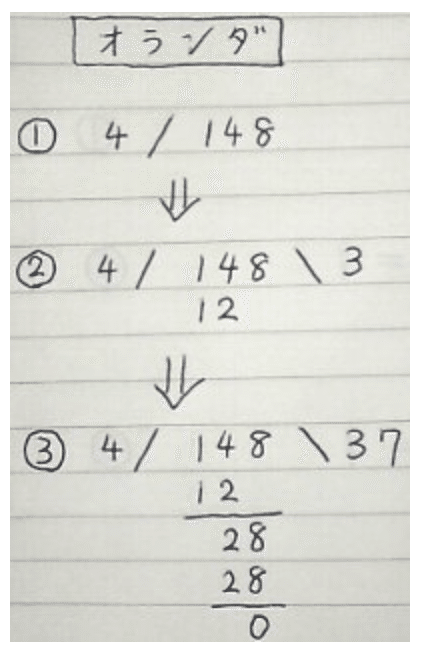 オランダ
① 4 / 148
⇓
② 4 / 148 \ 3
12
⇓
③ 4 / 148 \ 37
12
28
28
0